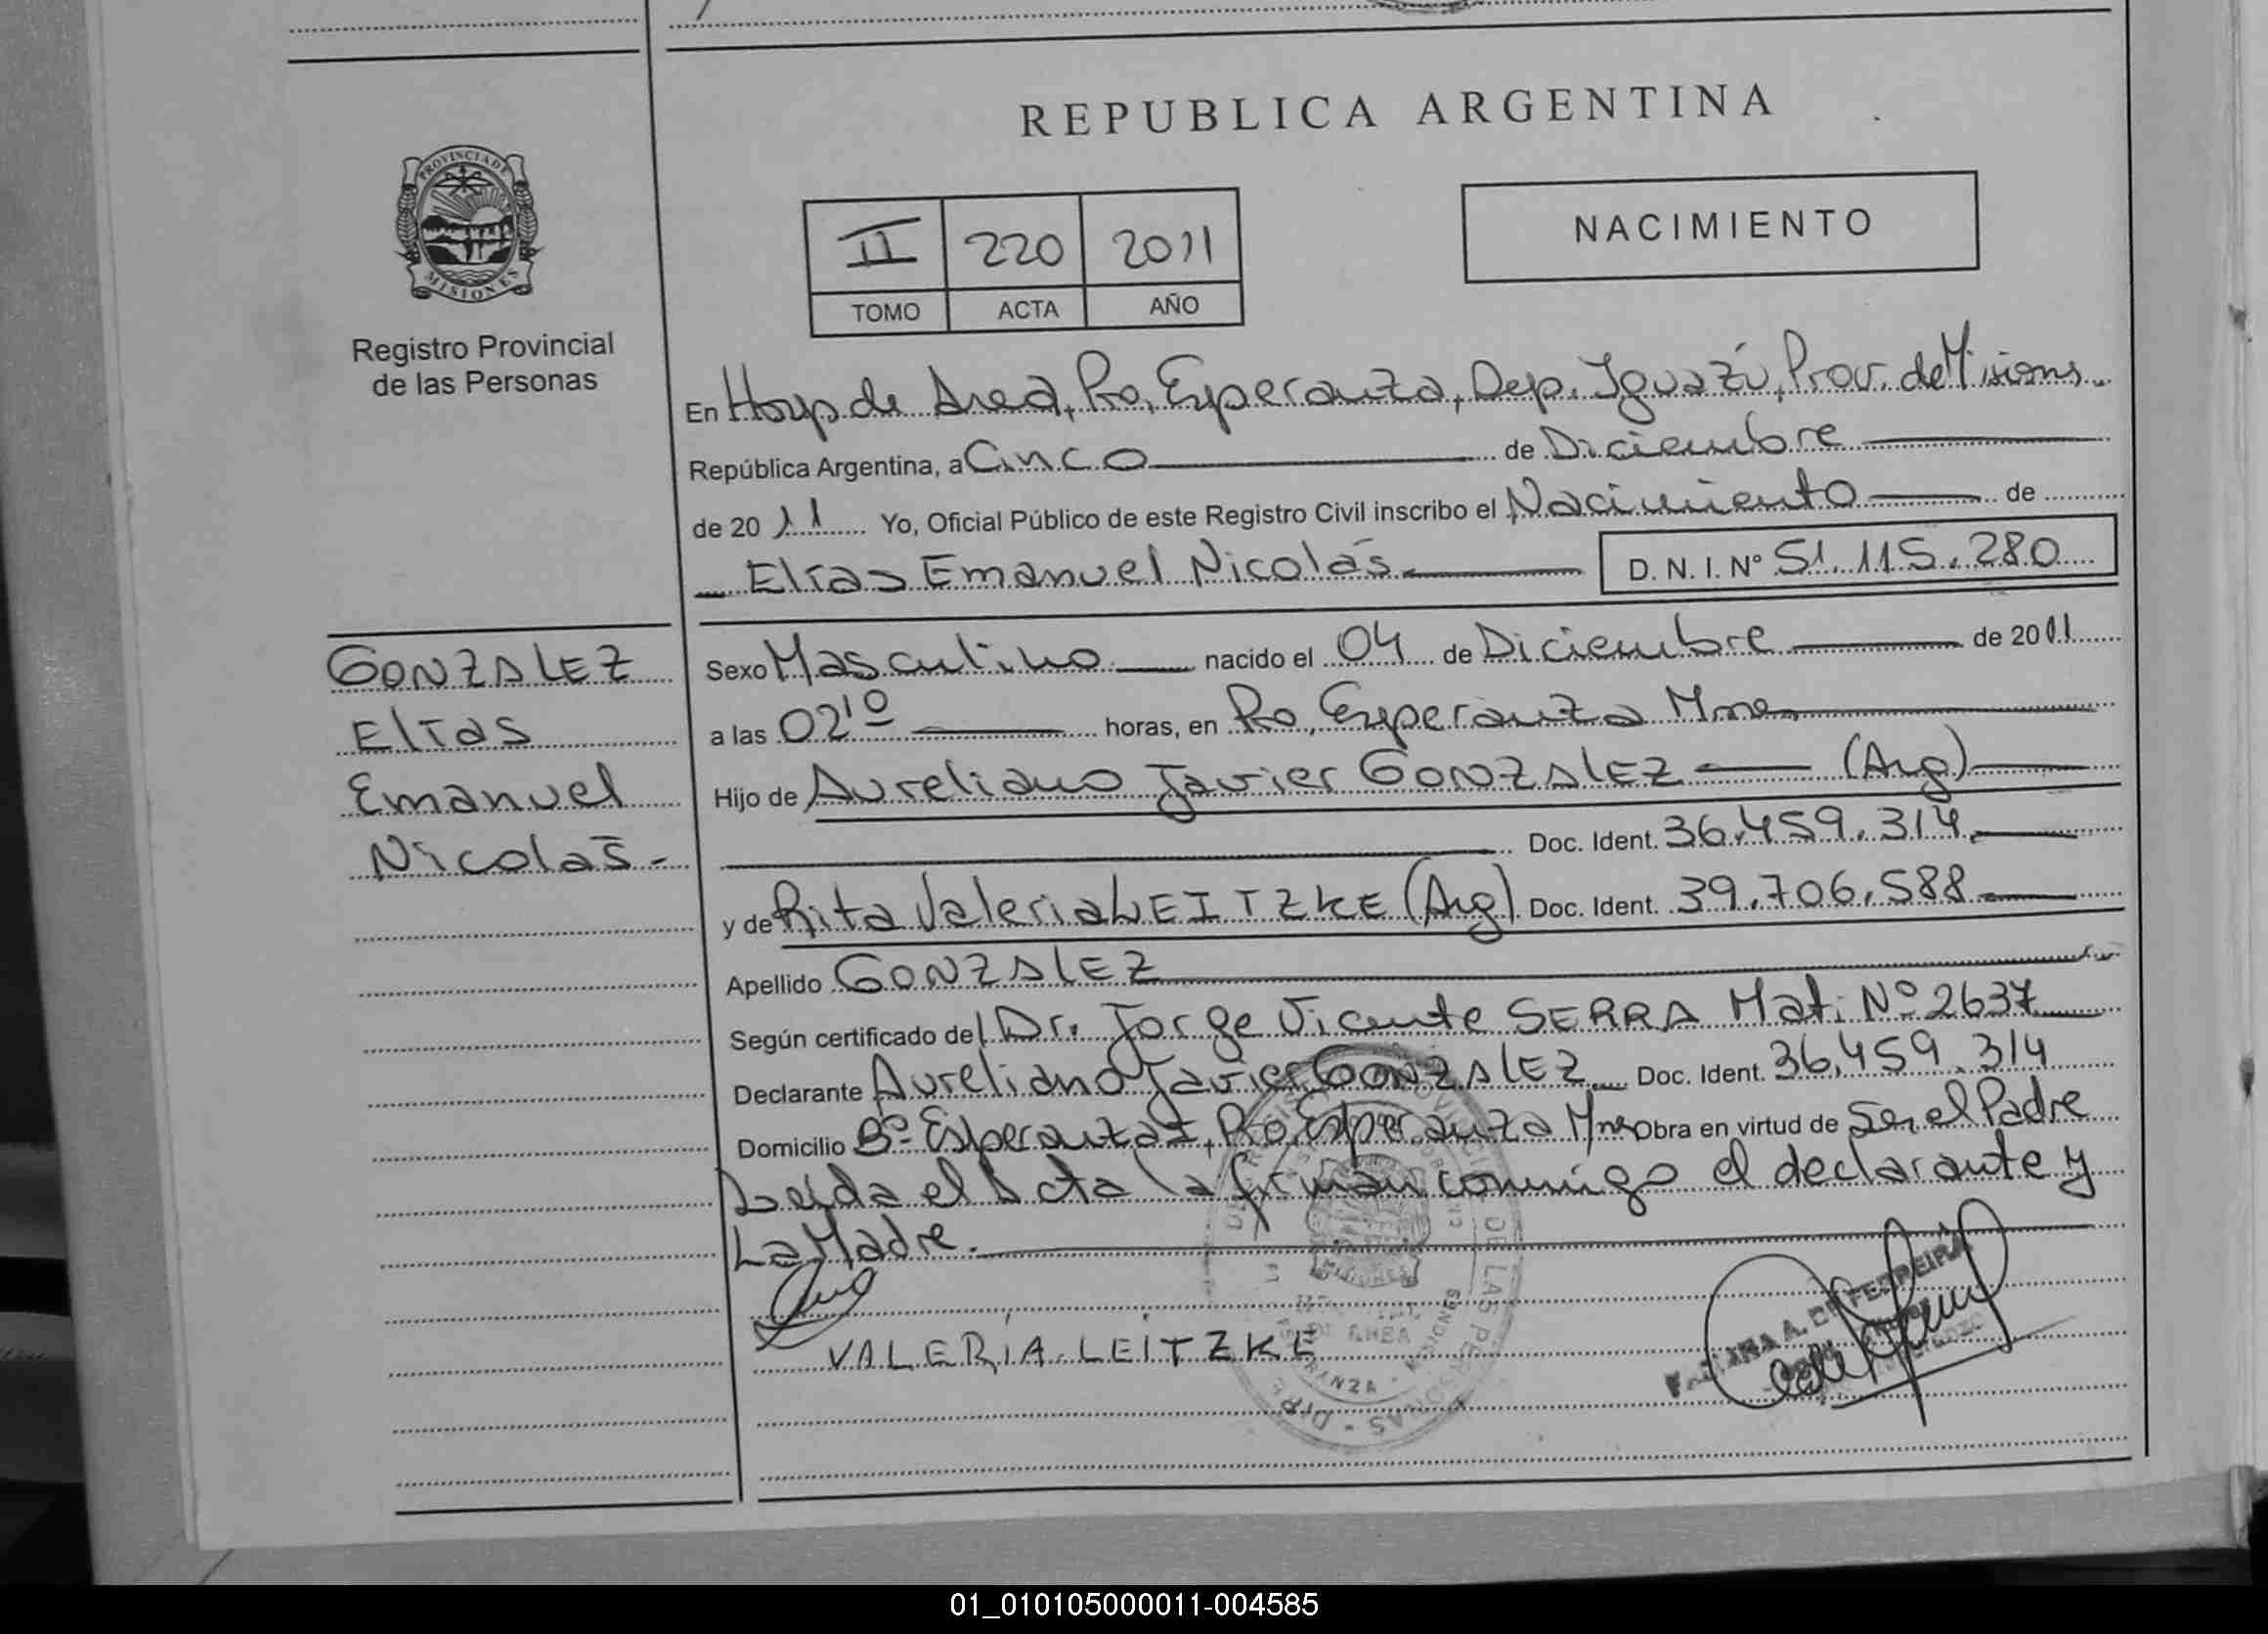 REPUBLICA ARGENTINA
PROVINCIA DE
MISIONES
Registro Provincial
de las Personas
II 220 2011
TOMO ACTA AÑO
NACIMIENTO
En Hosp de Area, Pto, Esperanza, Dep. Iguazú, Prov. de Misiones.
República Argentina, a Cinco de Diciembre
de 20 11 Yo, Oficial Público de este Registro Civil inscribo el Nacimiento de
Elías Emanuel Nicolás D. N. I. Nº 51.115.280
GONZALEZ
Elías
Emanuel
Nicolás
Sexo Masculino nacido el 04 de Diciembre de 2011
a las 02¹⁰ horas, en Pto, Esperanza Mnes
Hijo de Aureliano Javier GONZALEZ (Arg)
Doc. Ident. 36.459.314
y de Rita Valeria LEITZKE (Arg) Doc. Ident. 39.706.588
Apellido GONZALEZ
Según certificado del Dr. Jorge Vicente SERRA Mat. Nº 2637
Declarante Aureliano Javier GONZALEZ Doc. Ident. 36.459.314
Domicilio Bº Esperanza I, Pto Esperanza Mnes Obra en virtud de Ser el Padre
Leída el Acta la firman conmigo el declarante y
La Madre.
VALERIA LEITZKE
DE LAS PERSONAS
MISIONES
A. DE FERREIRA
01_010105000011-004585